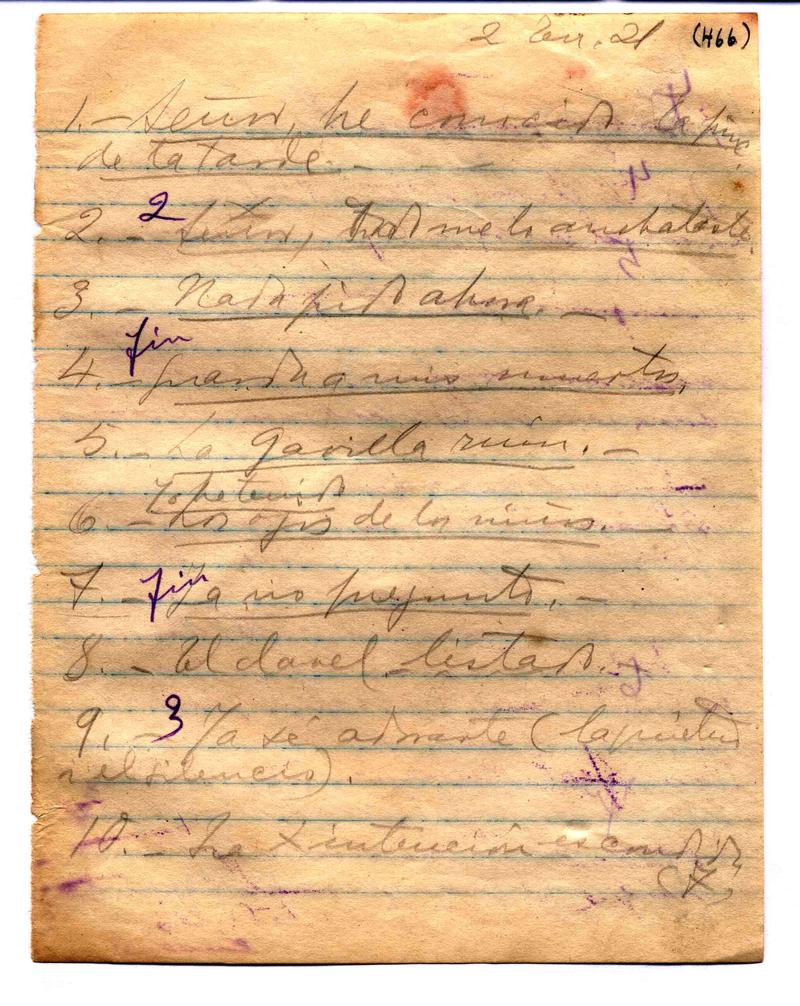 2 En. 21 (466)
1.- Señor, he conocido la
de la tarde. -
2.- 2 Señor, todo me lo arrebataste.
3. - Nada pido ahora. -
fin
4. - Guarda a mis muertos.
5. - La gavilla ruin. -
Yo he tenido
6 - Los ojos de los niños. -
7. - fin Ya no pregunto. -
8. - El clavel listado. -
9. - 3 Ya sé adorarte (la quietud
y el silencio).
10. - La X intención escondida
(7)